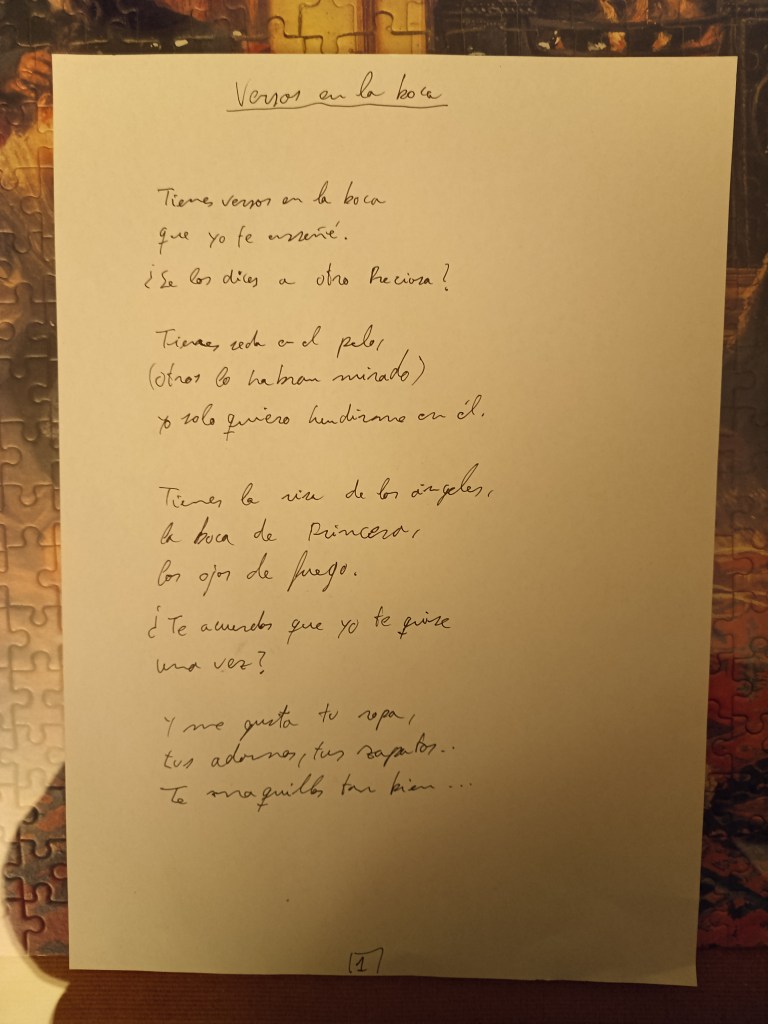 Versos en la boca
Tienes versos en la boca
que yo te enseñé.
¿Se los dices a otro Preciosa?
Tienes seda en el pelo,
(otros lo habran mirado)
yo solo quiero hundirme en él.
Tienes la risa de los ángeles,
la boca de Princesa,
los ojos de fuego.
¿Te acuerdas que yo te quise
una vez?
Y me gusta tu ropa,
tus adornos, tus zapatos..
Te maquillas tan bien ...
1